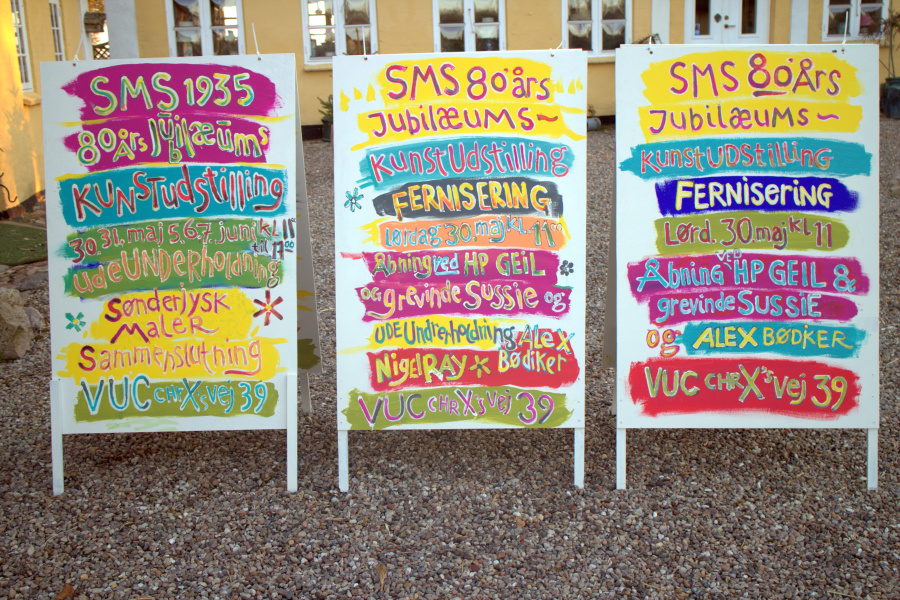 SMS 1935
80 års Jubilæums
KUNSTudstilling
30.31. maj 5.6.7. juni kl 11
til 17 00
udeUNDerholdning
Sønderjysk
MALER
Sammenslutning
VUC CHR X's vej 39
SMS 80 års
Jubilæums ~
KunstUdstilling
FERNISERING
Lørdag 30. maj kl. 11 00
Åbning ved HP GEIL
og grevinde Sussie og
UDE Undreholdning ALEX
NigelRAY * Bødiker
VUC CHR X's vej 39
SMS 80 Års
Jubilæums ~
KunstUDSTilling
FERNISERING
Lørd. 30. maj kl 11
Åbning VED HP GEIL &
grevinde SUSSIE
og ALEX BØDIKER
VUC CHR X's vej 39